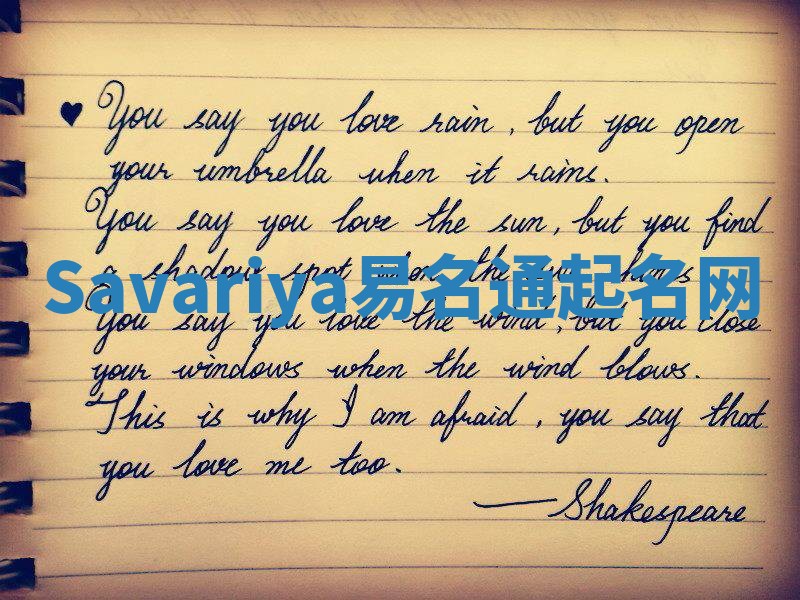 ♥ You say you love rain, but you open
your umbrella when it rains.
You say you love the sun, but you find
a shadow spot when the sun shines
Savariya易名通起名网
You say you love the wind, but you close
your windows when the wind blows.
This is why I am afraid, you say that
you love me too.
—Shakespeare